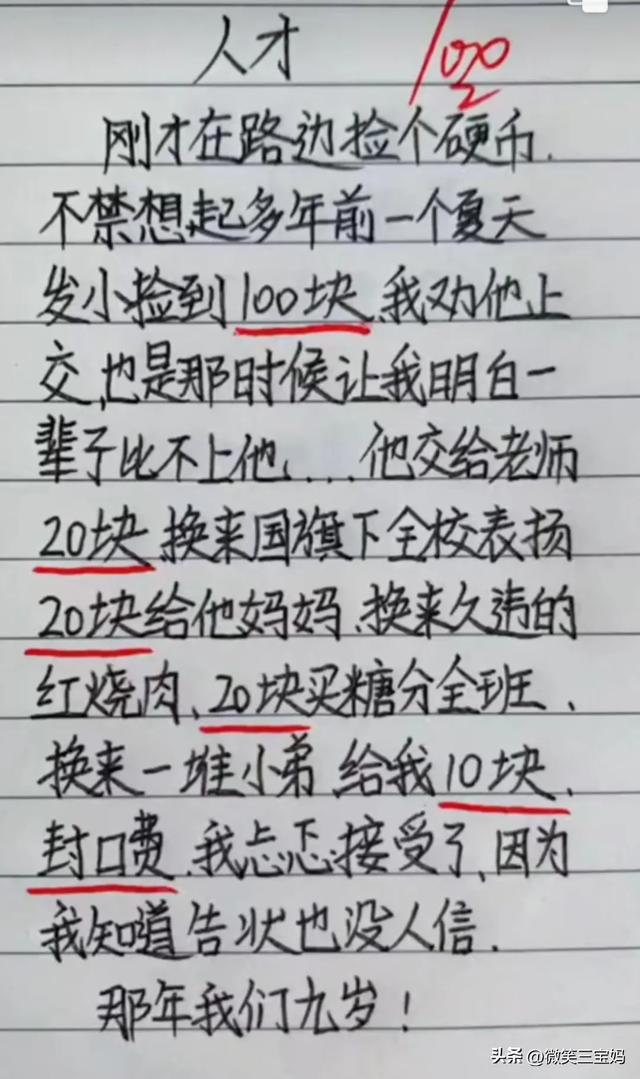 人才 100
刚才在路边捡个硬币.
不禁想起多年前一个夏天
发小捡到100块.我劝他上
交,也是那时候让我明白一
辈子比不上他....他交给老师
20块换来国旗下全校表扬
20块给他妈妈.换来久违的
红烧肉、20块买糖分全班、
换来一堆小弟 给我10块.
封口费.我忐忑接受了,因为
我知道告状也没人信.
那年我们九岁!
头条 @微笑三宝妈